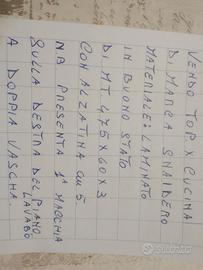 VENDO TOP X CUCINA
DI MARCA SNAIDERO
MATERIALE: LAMINATO
IN BUONO STATO
DIM 475 X 60 X 3
CON ALZATINA CM 5.
NB PRESENTA 1ª MACCHIA
SULLA DESTRA DEL PIANO
LAVABO
A DOPPIA VASCHA
subito